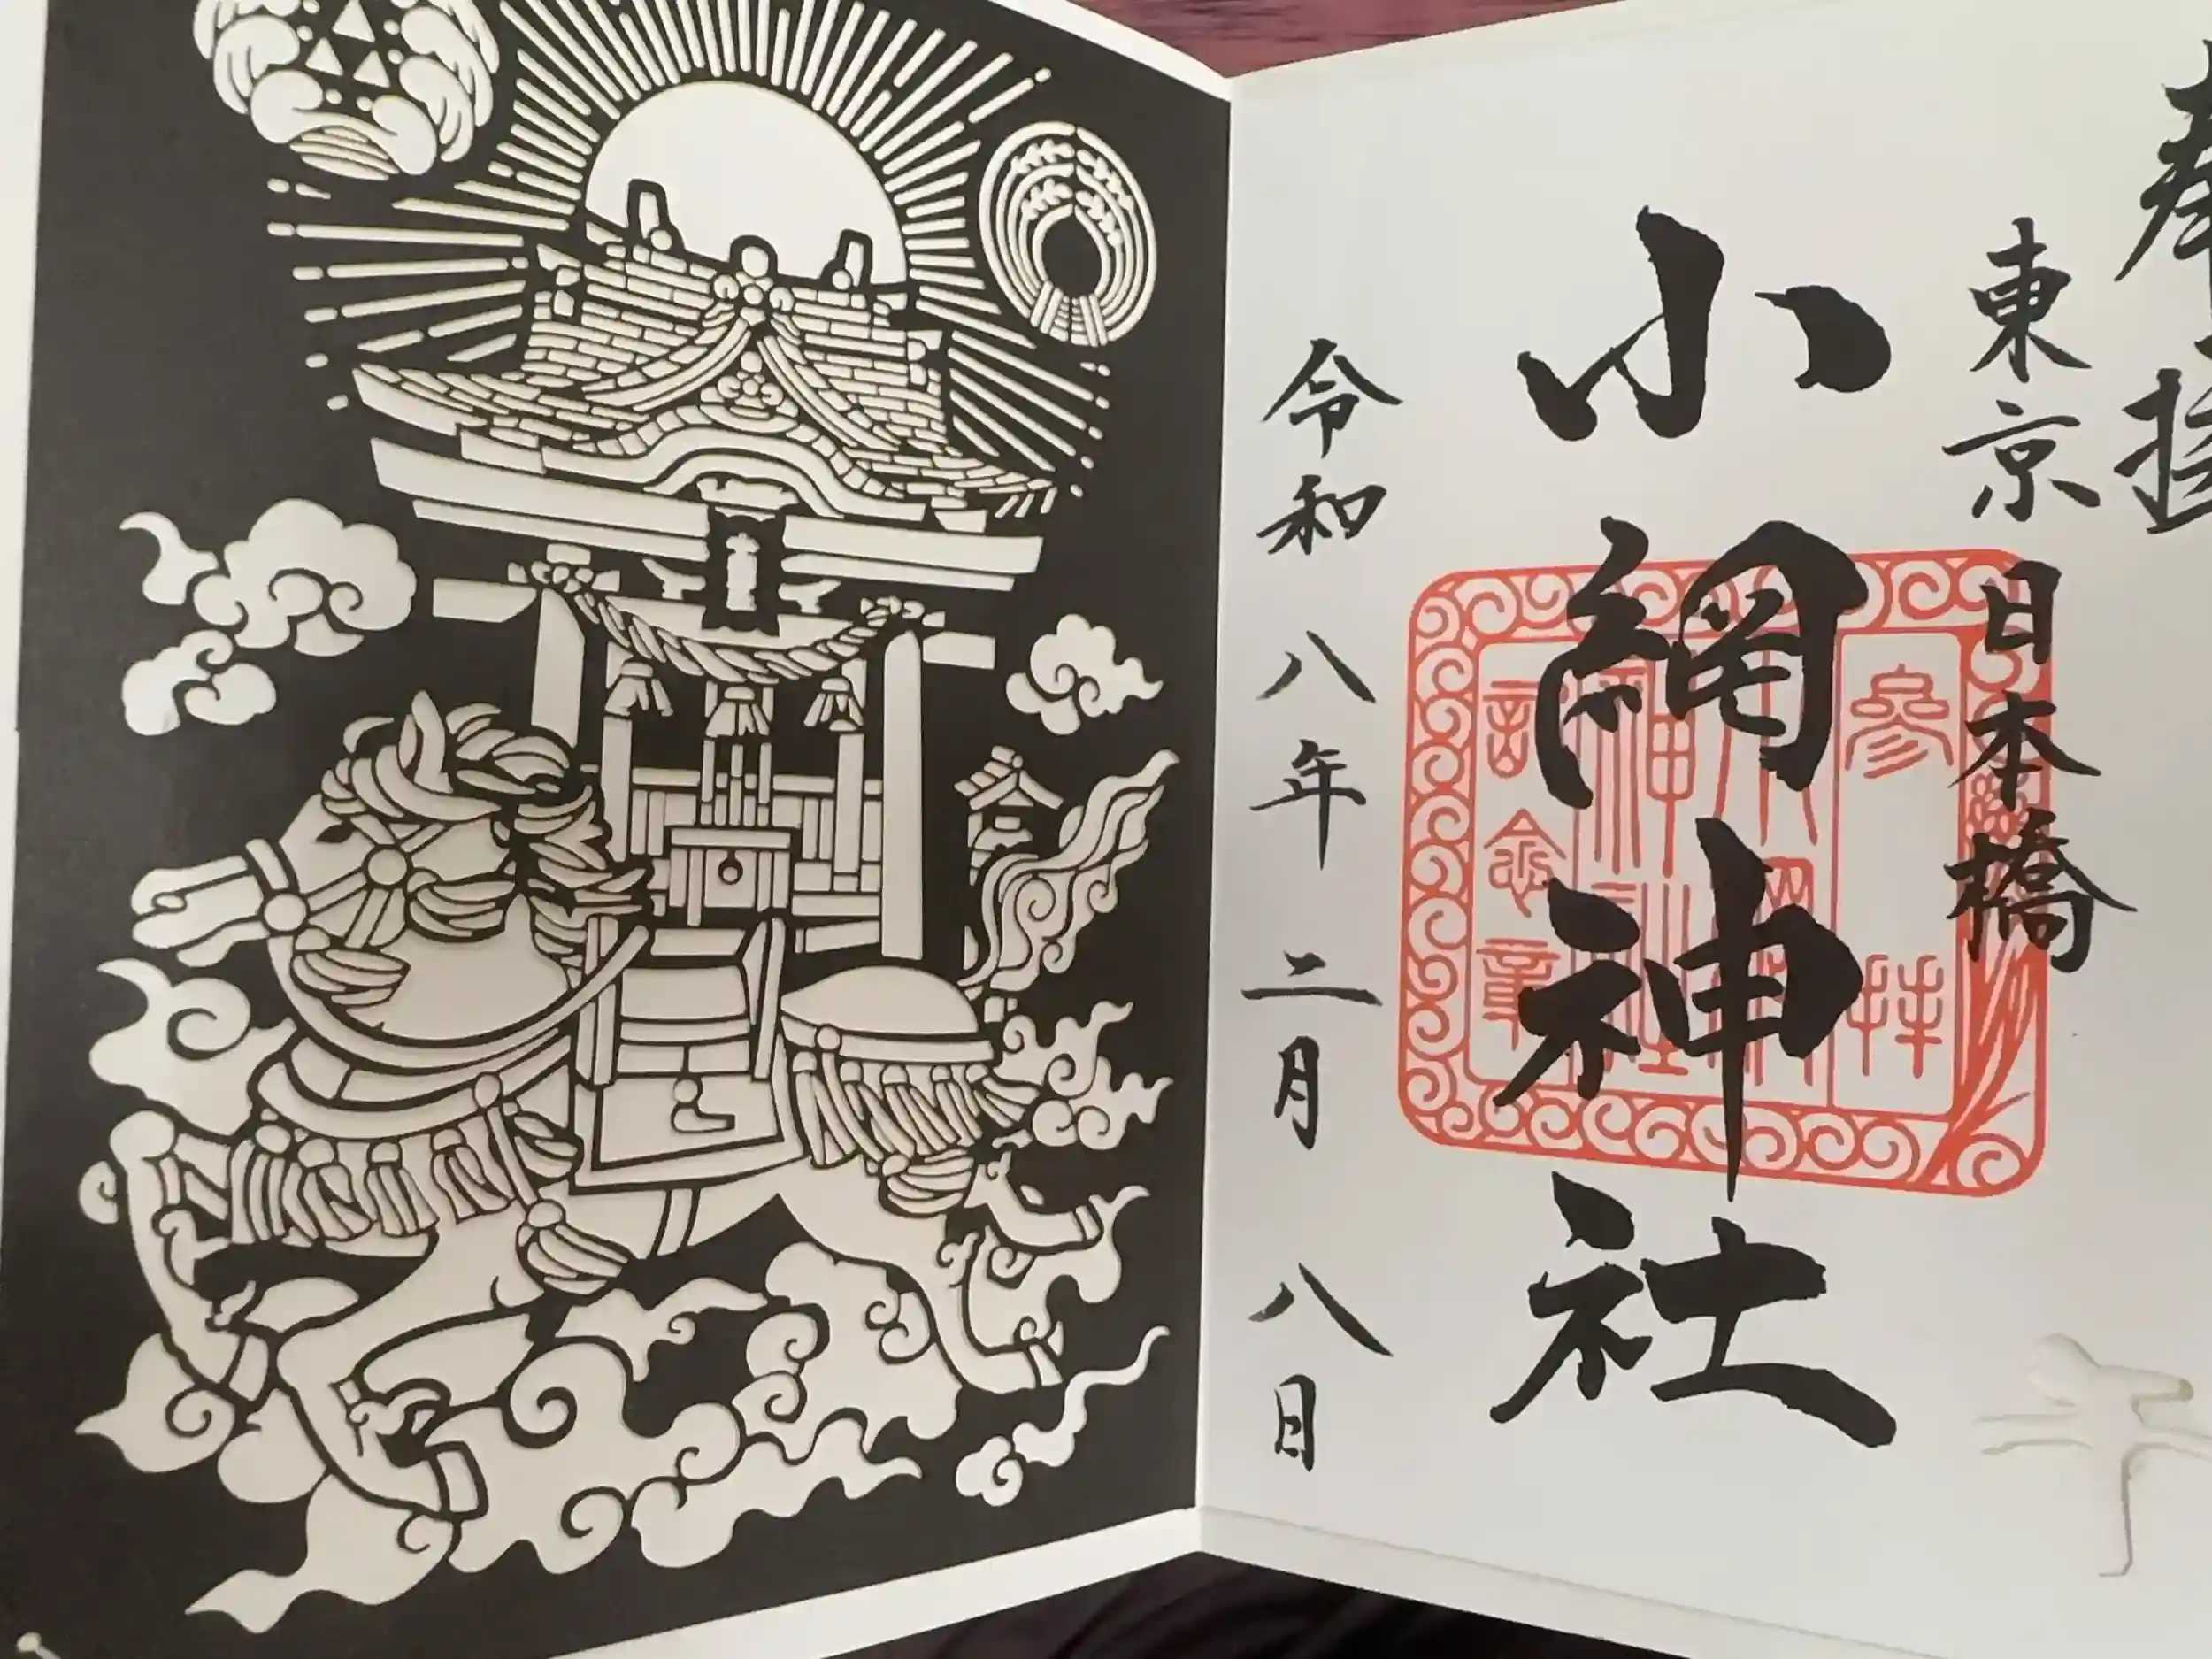 奉拝
東京日本橋
小網神社
令和八年二月八日
参拝
小網神社
記念章
午